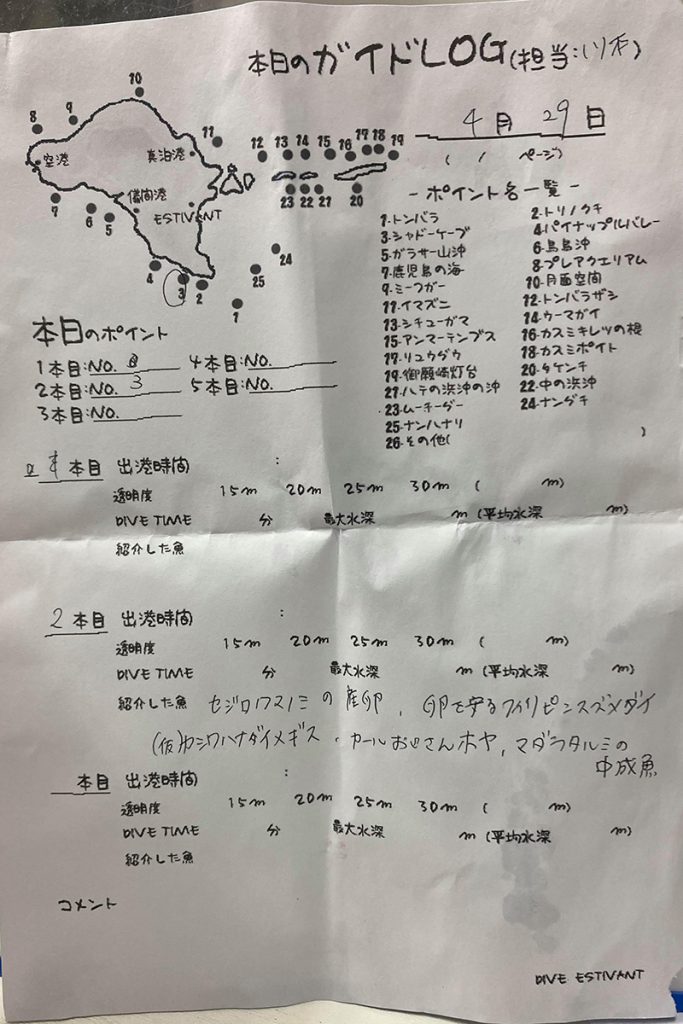 本日のガイドLOG(担当:
4月 29日
( / ページ)
10
8 9
11
空港 真泊港
12 13 14 15 16 17 18 19
儀間港
ESTIVANT
7 6 5
23 22 21 20
24
25
4 3 2
1
- ポイント名一覧 -
1.トンバラ 2.トリノクチ
3.シャドーケーブ 4.パイナップルバレー
5.ガラサー山沖 6.鳥島沖
7.鹿児島の海 8.プレアクエリアム
9.ミーフガー 10.月面空間
11.イマズニ 12.トンバラザシ
13.シチューガマ 14.ウーマガイ
15.アンマーテンプス 16.カスミキレツの根
17.リュウダウ 18.カスミポイト
19.御願崎灯台 20.タケンチ
21.ハテの浜沖の沖 22.中の浜沖
23.ムーチーダー 24.ナンダチ
25.ナンハナリ
26.その他( )
本日のポイント
1本目:NO. 4本目:NO.
2本目:NO. 3 5本目:NO.
3本目:NO.
本目 出港時間 :
透明度 15m 20m 25m 30m ( m)
DIVE TIME 分 最大水深 m (平均水深 m)
紹介した魚
2本目 出港時間 :
透明度 15m 20m 25m 30m ( m)
DIVE TIME 分 最大水深 m (平均水深 m)
紹介した魚 セジロノドグロベラの産卵、卵を守るフィリピンスズメダイ
(仮)カシワハナダイメギス・カールおじさんホヤ、マダラタルミの
中成魚
本目 出港時間 :
透明度 15m 20m 25m 30m ( m)
DIVE TIME 分 最大水深 m (平均水深 m)
紹介した魚
コメント
DIVE ESTIVANT